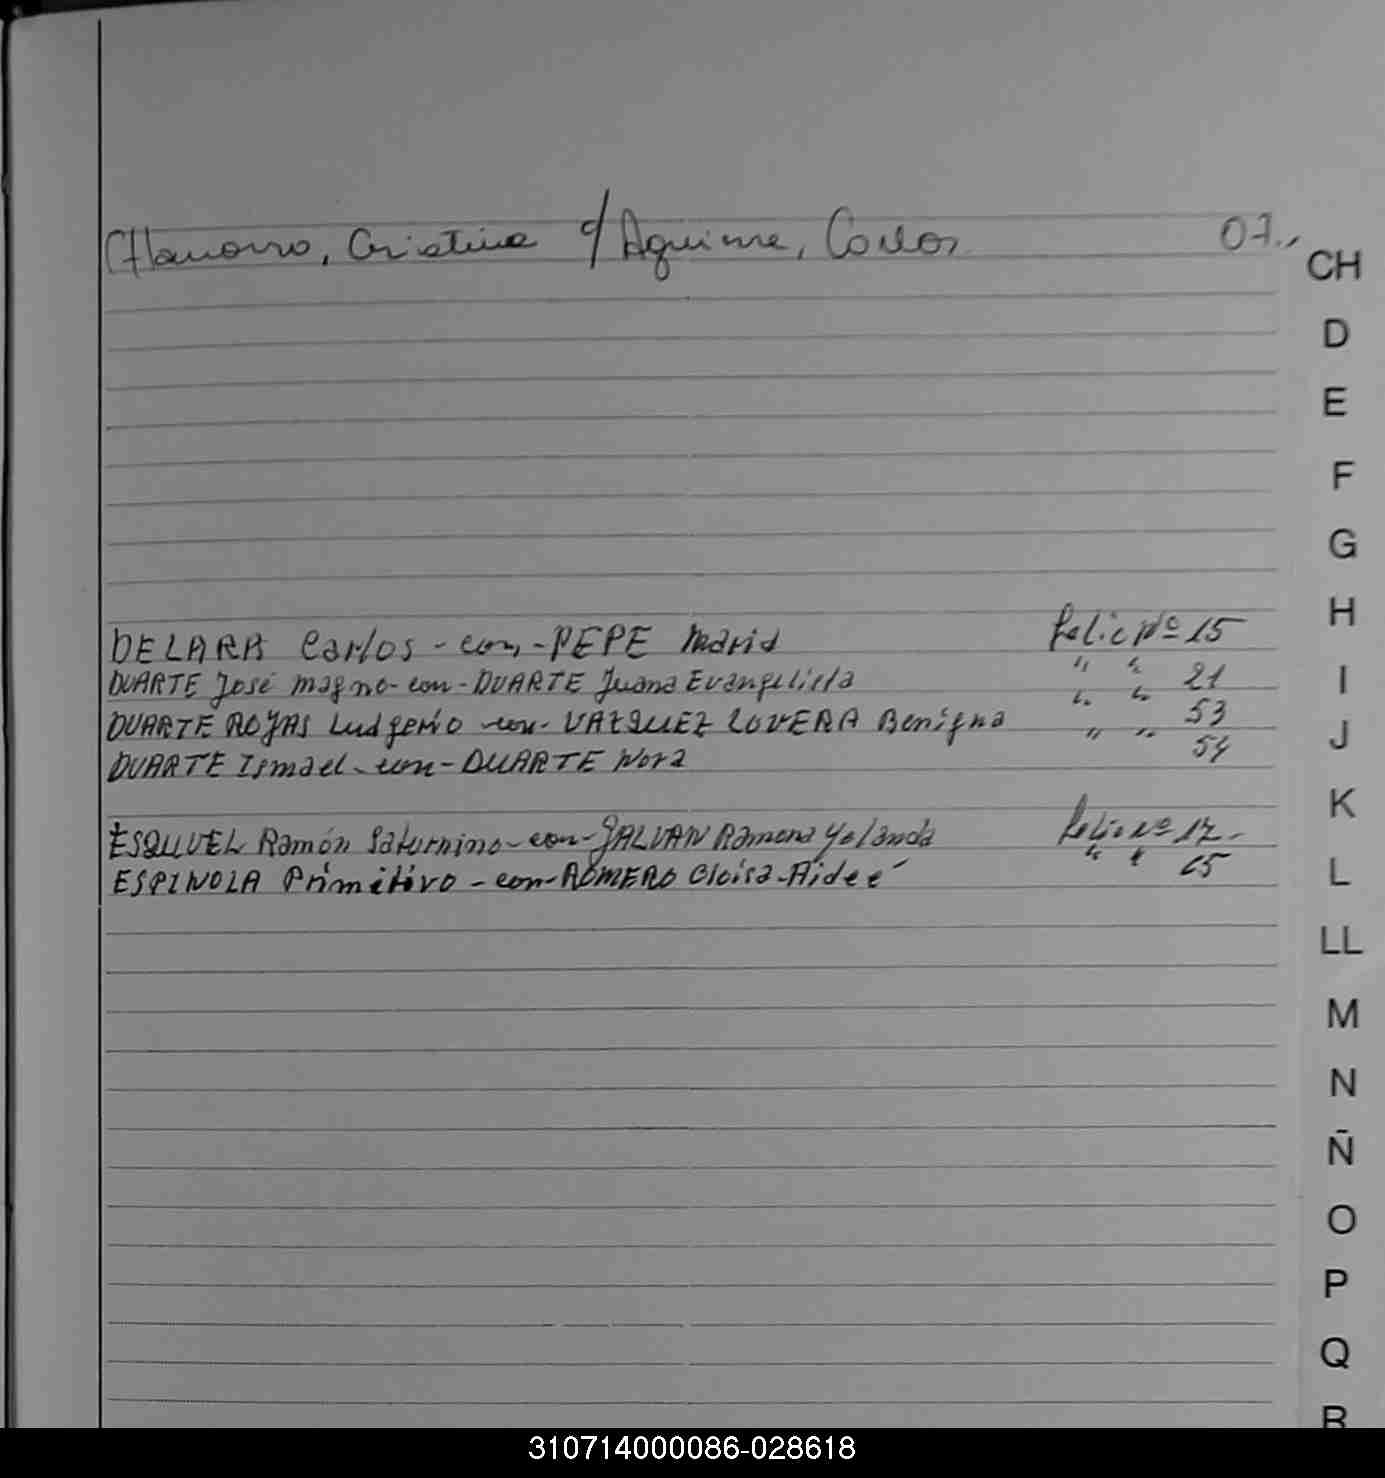 Chamorro, Cristina c/ Aguirre, Carlos 07.-
CH
D
E
F
G
DELARA Carlos - con - PEPE María Folio Nº 15
H
DUARTE José Magno - con - DUARTE Juana Evangelista " " 21
I
DUARTE ROJAS Ludgerio - con - VAZQUEZ LOVERA Benigna " " 53
J
DUARTE Ismael - con - DUARTE Nora " " 54
K
ESQUIVEL Ramón Saturnino - con - GALVAN Ramona Yolanda Folio Nº 17 -
ESPINOLA Primitivo - con - ROMERO Eloisa - Aideé " " 65
L
LL
M
N
Ñ
O
P
Q
R
310714000086-028618